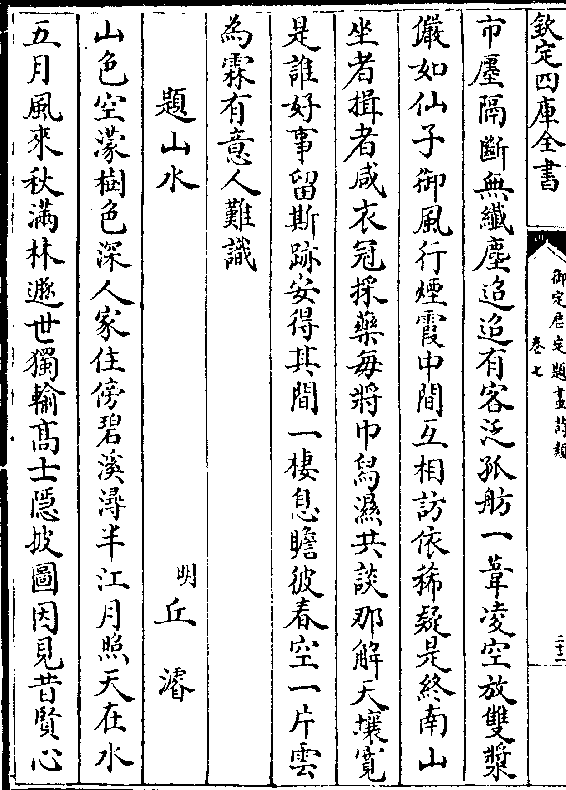 欽定四庫全書
御定歷代題畫詩類
卷七
二十二
市廛隔斷無纎塵迢迢有客泛孤舫一葦凌空放雙槳
儼如仙子御風行煙霞中間互相訪依稀疑是終南山
坐者揖者咸衣冠採藥每將巾舄濕共談那解天壤寛
是誰好事留斯跡安得其間一棲息瞻彼春空一片雲
為霖有意人難識
題山水
明 丘濬
山色空濛樹色深人家住傍碧溪潯半江月照天在水
五月風來秋滿林遯世獨輸髙士隠披圖因見昔賢心